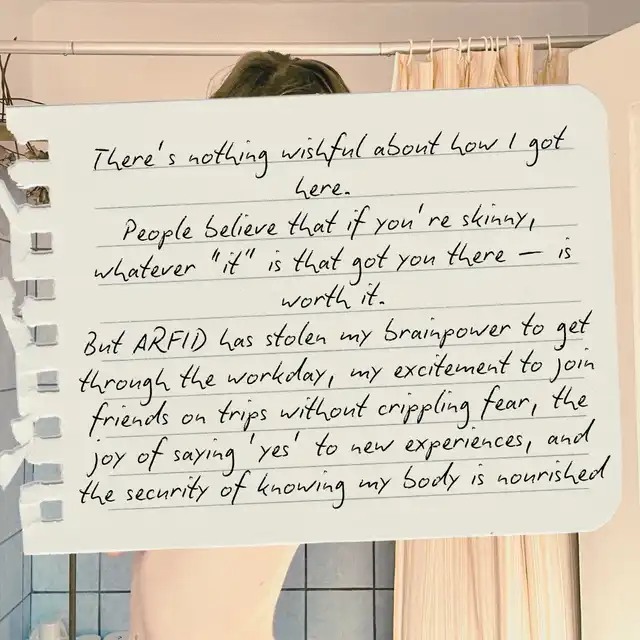 There's nothing wishful about how I got
here.
People believe that if you're skinny,
whatever "it" is that got you there — is
worth it.
But ARFID has stolen my brainpower to get
through the workday, my excitement to join
friends on trips without crippling fear, the
joy of saying 'yes' to new experiences, and
the security of knowing my body is nourished